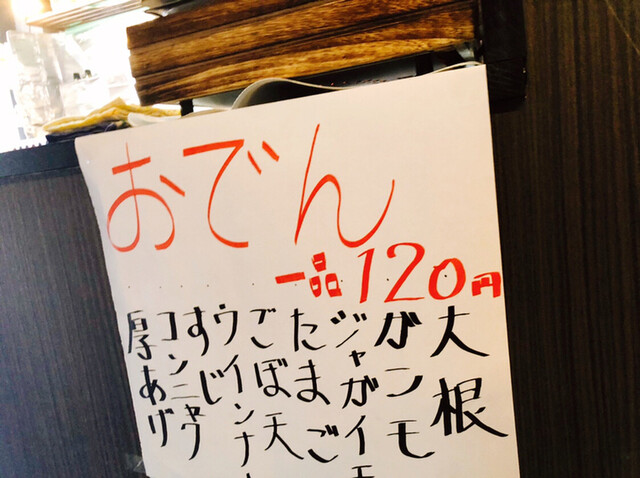 おでん
一品120円
大根
がンモ
ジャガイモ
たまご
ごぼ天
ウインナー
すじ
コンニャク
厚あげ